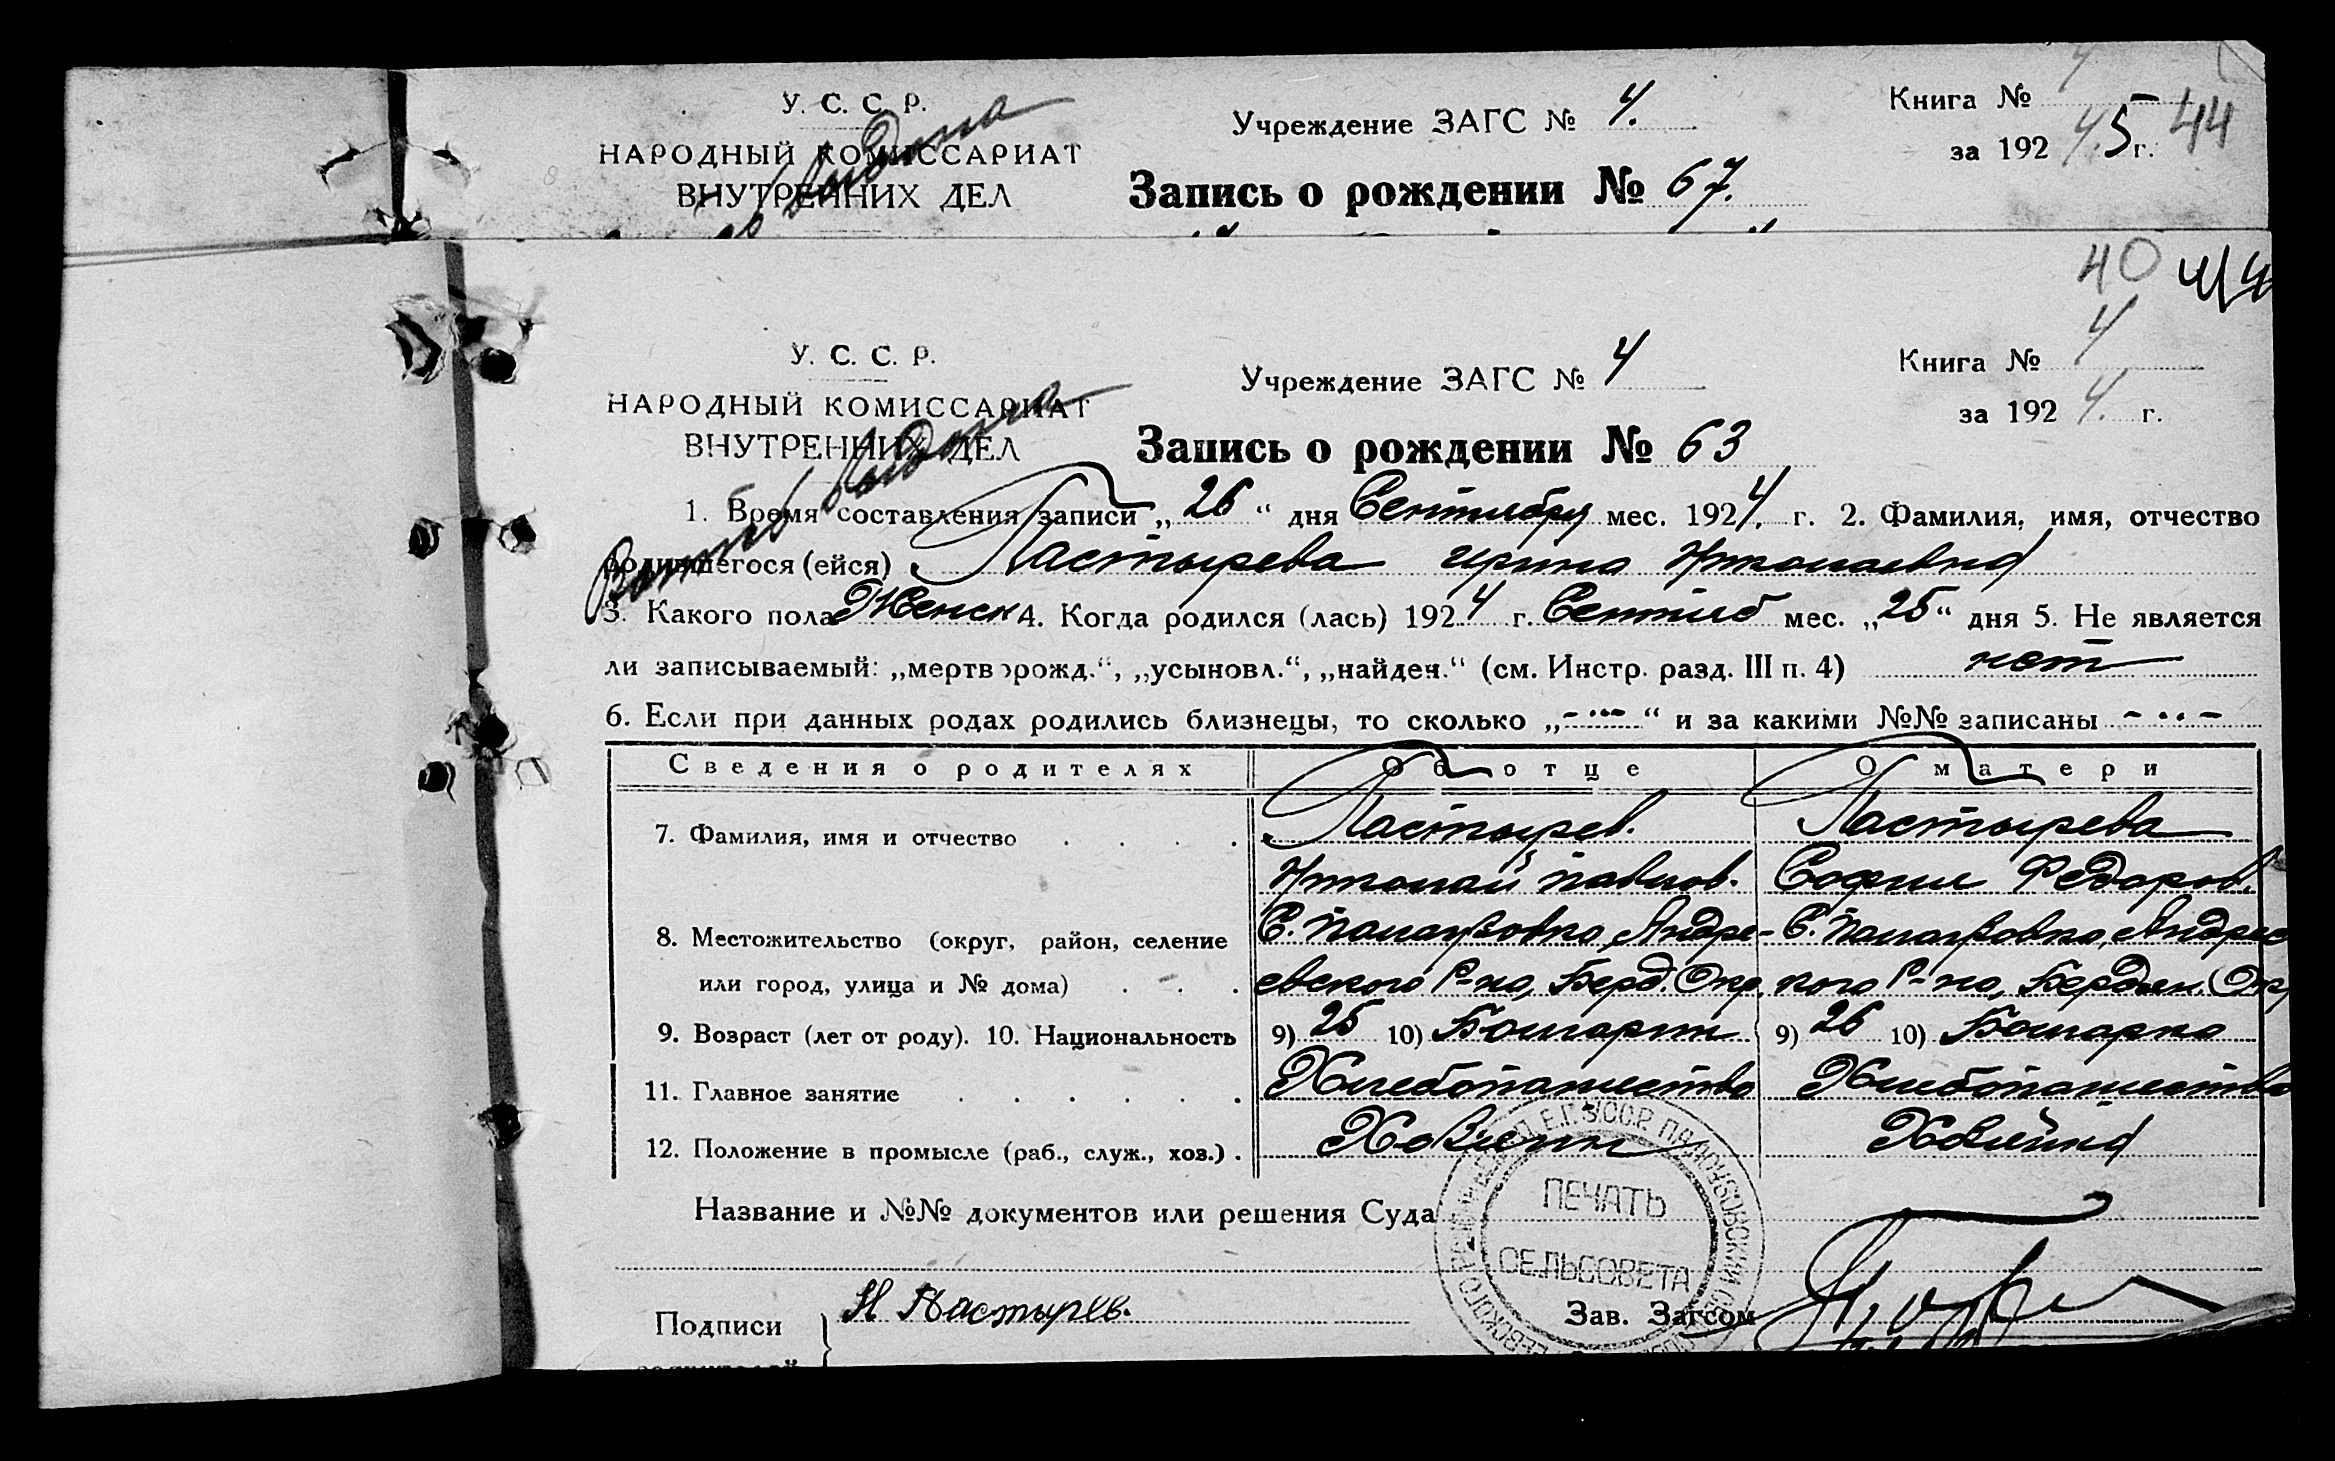 У. С. С. Р.
НАРОДНЫЙ КОМИССАРИАТ
ВНУТРЕННИХ ДЕЛ
Учреждение ЗАГС № 4.
Запись о рождении № 67.
Книга № 4
за 192 4. 5 г. 44
40 44
У. С. С. Р.
НАРОДНЫЙ КОМИССАРИАТ
ВНУТРЕННИХ ДЕЛ
Учреждение ЗАГС № 4
Запись о рождении № 63
Книга № 4
за 192 4. г.
1. Время составления записи „ 26 “ дня Сентября мес. 192 4. г. 2. Фамилия, имя, отчество
родившегося (ейся) Пастырева Ирина Николаевна
3. Какого пола Женск 4. Когда родился (лась) 192 4 г. Сентяб мес. „ 25 “ дня 5. Не является
ли записываемый: „мертворожд.“, „усыновл.“, „найден.“ (см. Инстр. разд. III п. 4) нет
6. Если при данных родах родились близнецы, то сколько „-...-“ и за какими №№ записаны - .. -
Сведения о родителях Об отце О матери
7. Фамилия, имя и отчество . . . . Пастырев. Пастырева
Николай Павлов. София Федоров.
8. Местожительство (округ, район, селение С. Палаузовка, Андре- С. Палаузовка, Андреев
или город, улица и № дома) . . . евского Р-на, Берд. Окр. кого Р-на, Бердян. Окр
9. Возраст (лет от роду). 10. Национальность 9) 25 10) Болгарин 9) 26 10) Болгарка
11. Главное занятие . . . . . . Хлебопашество Хлебопашество
12. Положение в промысле (раб., служ., хоз.) . Хозяин Хозяйка
Название и №№ документов или решения Суда
ПЕЧАТЬ
СЕЛЬСОВЕТА
Подписи } Н Пастырев. Зав. Загсом